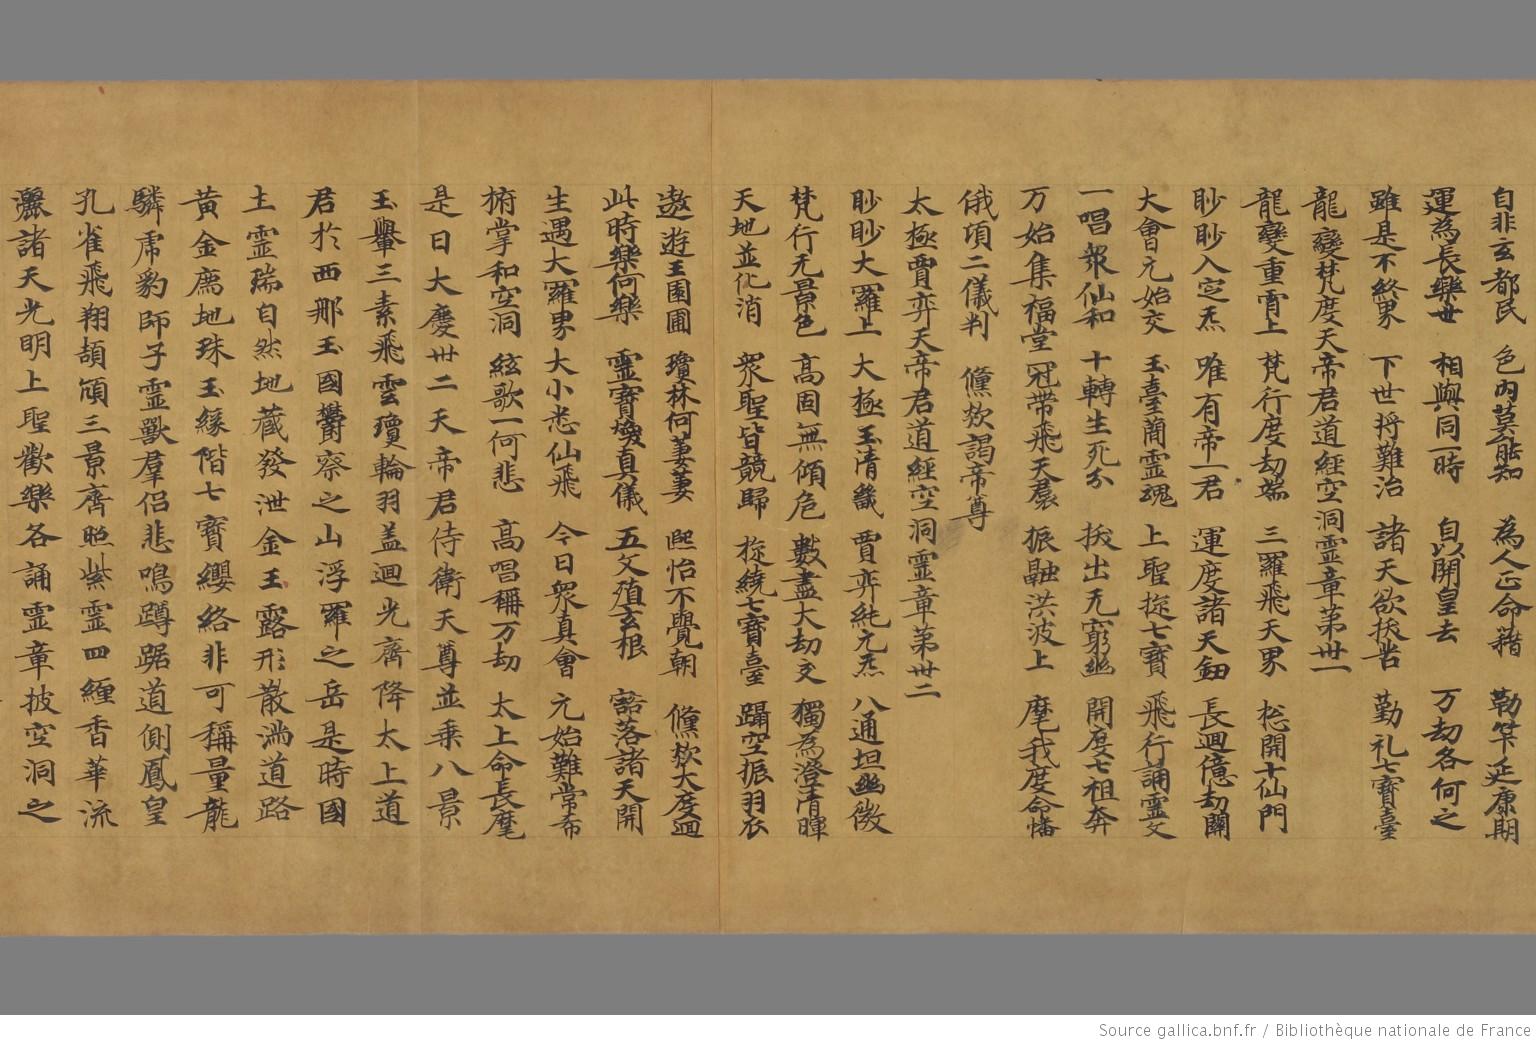 自非玄都民 色內莫能知 為人正命藉 勒筭延康期
運為長樂世 相與同一時 自以開皇去 万劫各何之
雖是不終界 下世將難治 諸天欲扶苦 勤礼七寶臺
龍變梵度天帝君道經空洞靈章第卅一
龍變重霄上 梵行度劫端 三羅飛天界 惣開十仙門
眇眇入定炁 唯有帝一君 運度諸天劫 長迴億劫關
大會元始交 玉臺蘭靈魂 上聖旋七寶 飛行誦靈文
一唱衆仙和 十轉生死分 拔出无窮幽 開度七祖奔
万始集福堂 冠帶飛天裙 振融洪波上 魔我度命幡
俄頃二儀判 儻欻謁帝尊
太極賈弈天帝君道經空洞靈章第卅二
眇眇大羅上 太極玉清畿 賈弈純元炁 八通坦幽微
梵行无景色 高固無傾危 數盡大劫交 獨為澄清暉
天地並化消 衆聖皆競歸 旋繞七寶臺 躡空振羽衣
遨遊玉園圃 瓊林何萋萋 熙怡不覺朝 儻欻大度迴
此時樂何樂 靈寶煥真儀 五文殖玄根 豁落諸天開
生遇大羅界 大小悉仙飛 今日衆真會 元始難常希
擳掌和空洞 絃歌一何悲 高唱稱万劫 太上命長麾
是日大慶卅二天帝君侍衛天尊並乘八景
玉轝三素飛雲瓊輪羽盖迴光齊降太上道
君於西那玉國欝察之山浮羅之岳是時國
土靈瑞自然地藏發泄金玉露形散滿道路
黃金薦地珠玉緣階七寶纓絡非可稱量龍
驎虎豹師子靈獸羣侶悲鳴蹲踞道側鳳皇
孔雀飛翔頡頏三景齊照紫靈四纏香華流
灑諸天光明上聖歡樂各誦靈章披空洞之
Source gallica.bnf.fr / Bibliothèque nationale de France